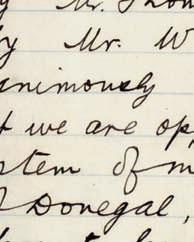 Mr. Thom
y Mr. W
animously
t we are op
stem of m
Donegal,